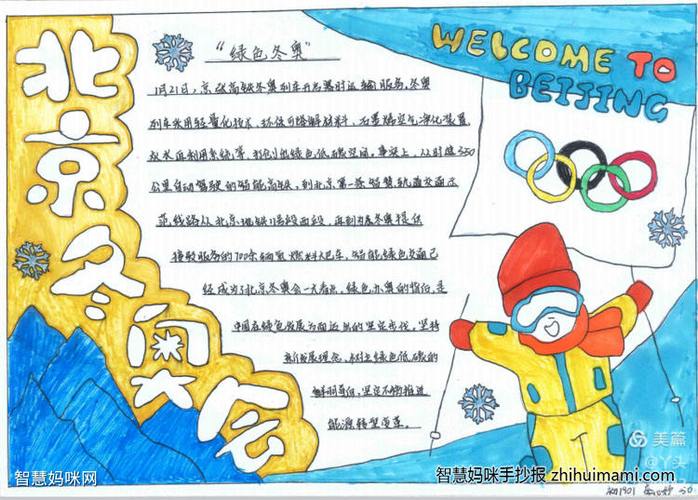 北京冬奥大会
"绿色冬奥"
WELCOME TO
BEIJING
1月21日,京张高铁冬奥列车开启赛时运输服务。冬奥
列车采用轻量化技术,环保可降解材料,石墨烯空气净化装置,
灰水再利用系统等,打创出绿色低碳空间。事实上,从时速350
公里自动驾驶的智能高铁,到北京第一条智慧轨道交通示
范线路从北京地铁11号线西段,再到为冬奥提供
接驳服务的700余辆氢燃料大巴车,智能绿色交通已
经成为了北京冬奥会一大看点。绿色办奥的背后,是
中国在绿色发展方面迈出的坚定步伐,坚持
新发展理念,树立绿色低碳的
鲜明导向,坚定不移推进
能源转型变革。
美篇
@丫头
智慧妈咪网
智慧妈咪手抄报 zhihuimami.com
初1901
50